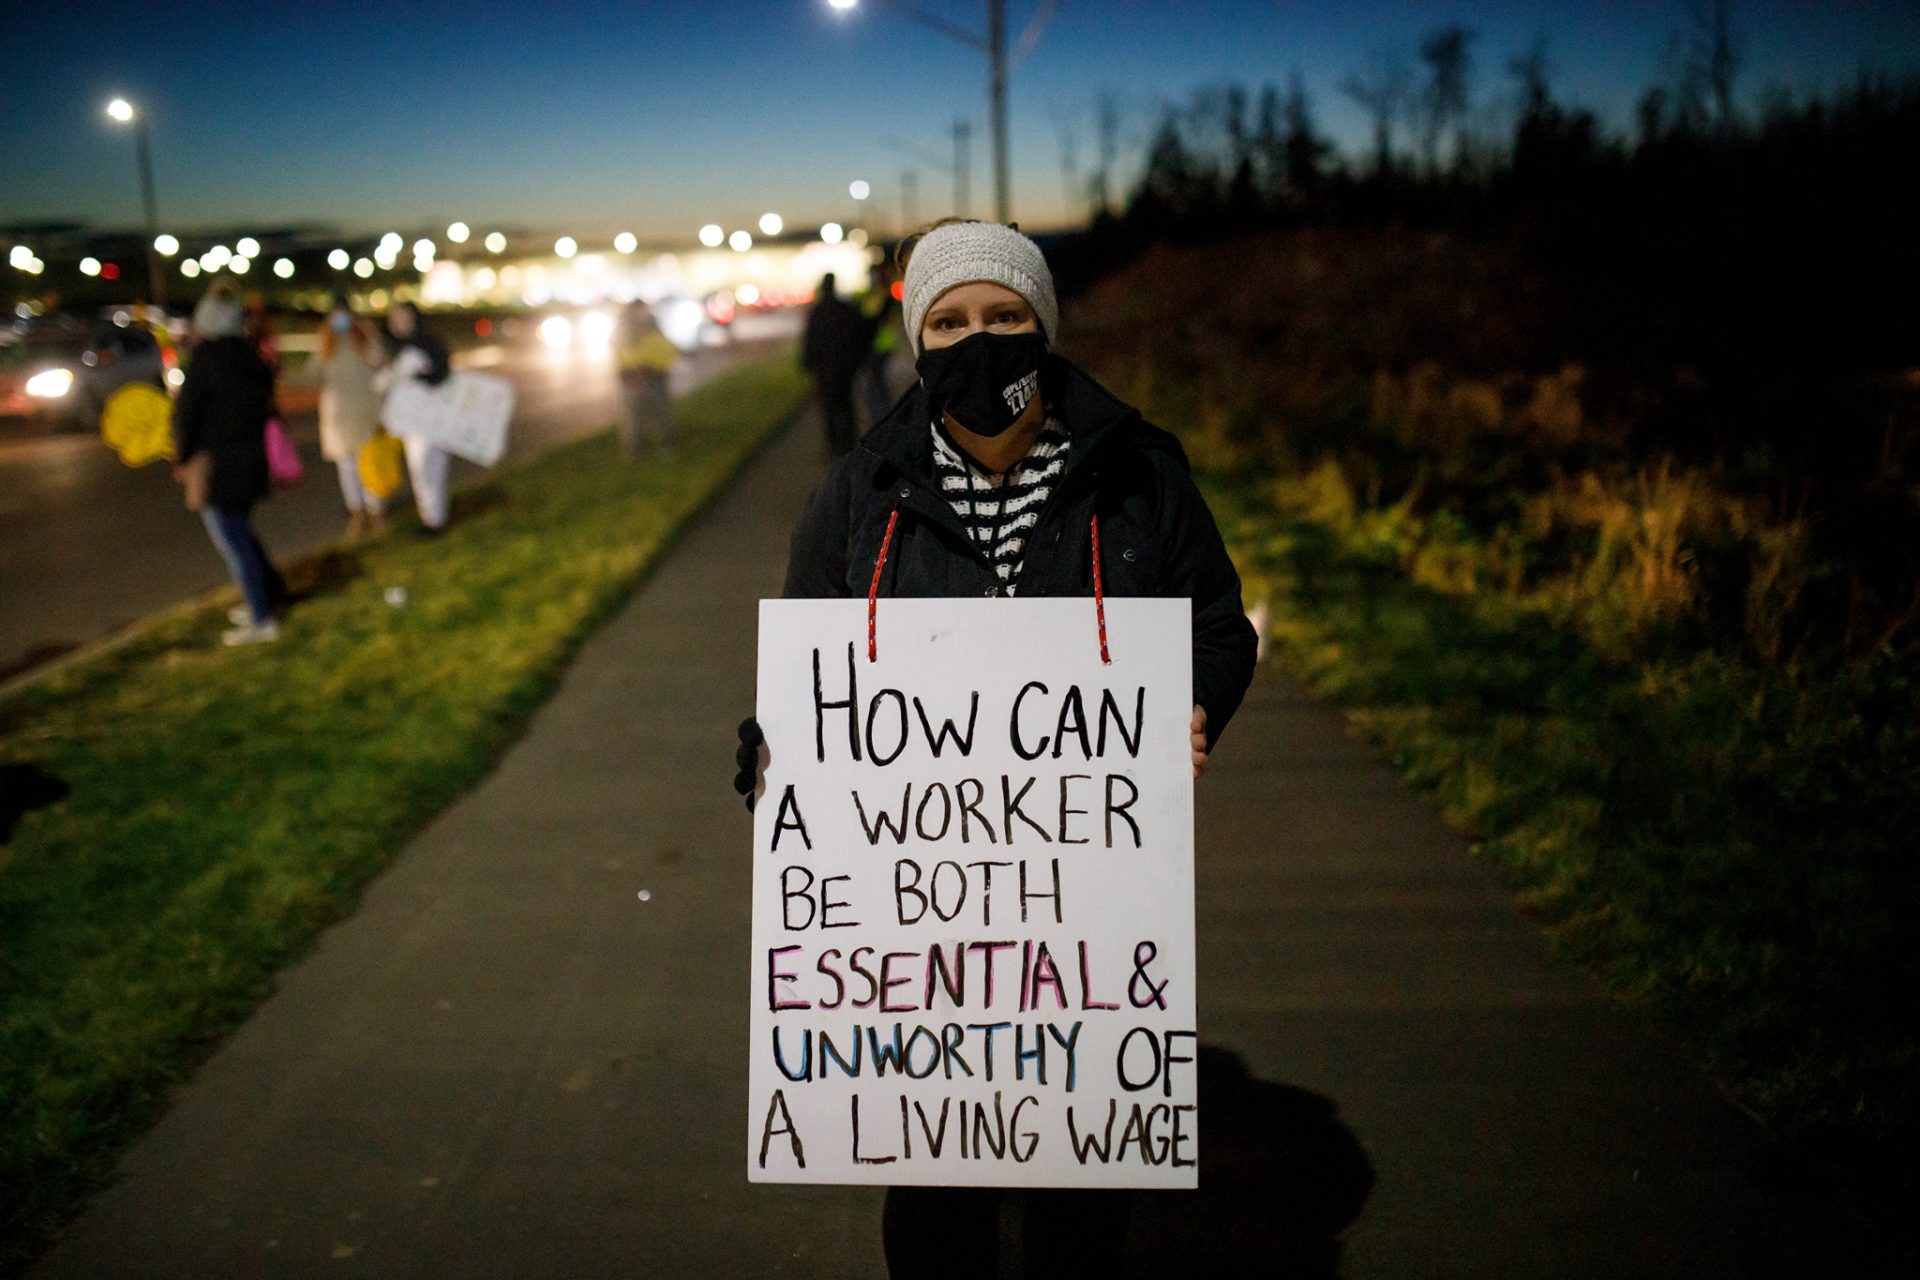 HOW CAN
A WORKER
BE BOTH
ESSENTIAL &
UNWORTHY OF
A LIVING WAGE
CUPE/SCFP